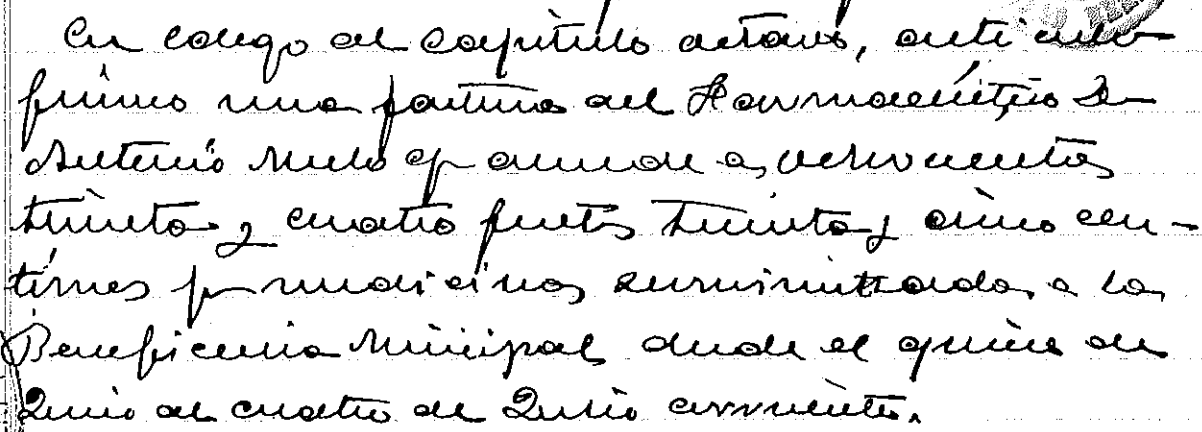 Con cargo al capítulo octavo, artículo
primero una factura del Farmacéutico Dn
Antonio Melo q asciende a ochocientas
treinta y cuatro pesetas treinta y cinco cen-
timos por medicinas suministradas a la
Beneficencia Municipal desde el quince de
Junio al cuatro de Julio corriente.